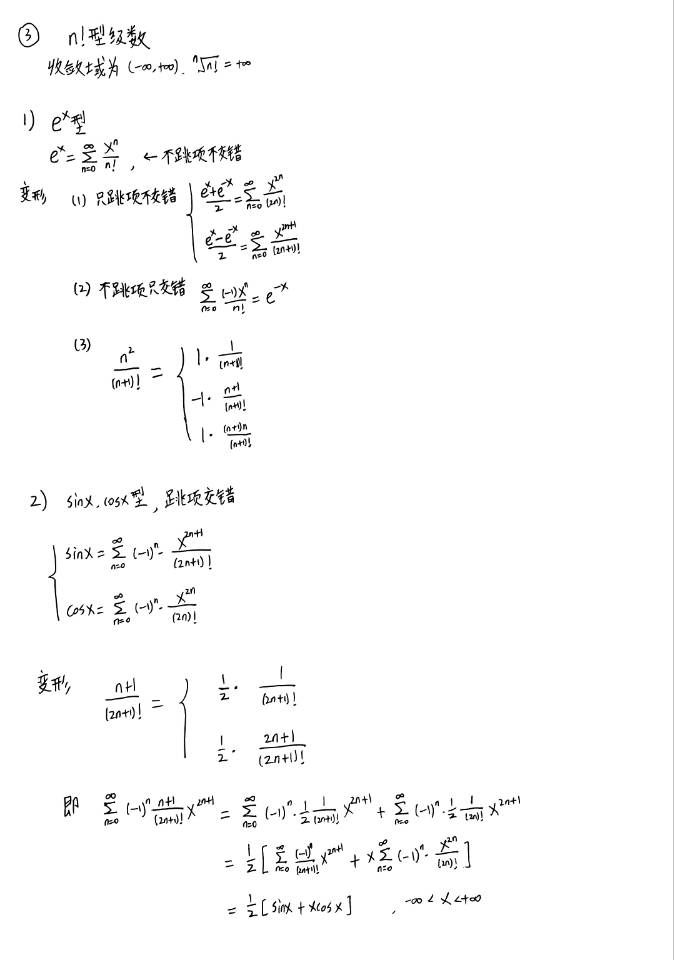 ③ n!型级数
收敛域为 (-∞,+∞). ⁿ√n! = +∞
1) eˣ型
eˣ = ∑_{n=0}^{∞} xⁿ/n! , ← 不跳项不交错
变形 (1) 只跳项不交错 { (eˣ+e⁻ˣ)/2 = ∑_{n=0}^{∞} x²ⁿ/(2n)!
(eˣ-e⁻ˣ)/2 = ∑_{n=0}^{∞} x²ⁿ⁺¹/(2n+1)!
(2) 不跳项只交错 ∑_{n=0}^{∞} (-1)xⁿ/n! = e⁻ˣ
(3) n²/(n+1)! = { 1 · 1/(n+1)!
-1 · (n+1)/(n+1)!
1 · (n+1)n/(n+1)!
2) sinx, cosx型, 跳项交错
{ sinx = ∑_{n=0}^{∞} (-1)ⁿ · x²ⁿ⁺¹/(2n+1)!
cosx = ∑_{n=0}^{∞} (-1)ⁿ · x²ⁿ/(2n)!
变形 (n+1)/(2n+1)! = { 1/2 · 1/(2n+1)!
1/2 · (2n+1)/(2n+1)!
即 ∑_{n=0}^{∞} (-1)ⁿ (n+1)/(2n+1)! x²ⁿ⁺¹ = ∑_{n=0}^{∞} (-1)ⁿ · 1/2 1/(2n+1)! x²ⁿ⁺¹ + ∑_{n=0}^{∞} (-1)ⁿ · 1/2 1/(2n)! x²ⁿ⁺¹
= 1/2 [ ∑_{n=0}^{∞} (-1)ⁿ/(2n+1)! x²ⁿ⁺¹ + x ∑_{n=0}^{∞} (-1)ⁿ · x²ⁿ/(2n)! ]
= 1/2 [ sinx + xcosx ] , -∞ < x < +∞